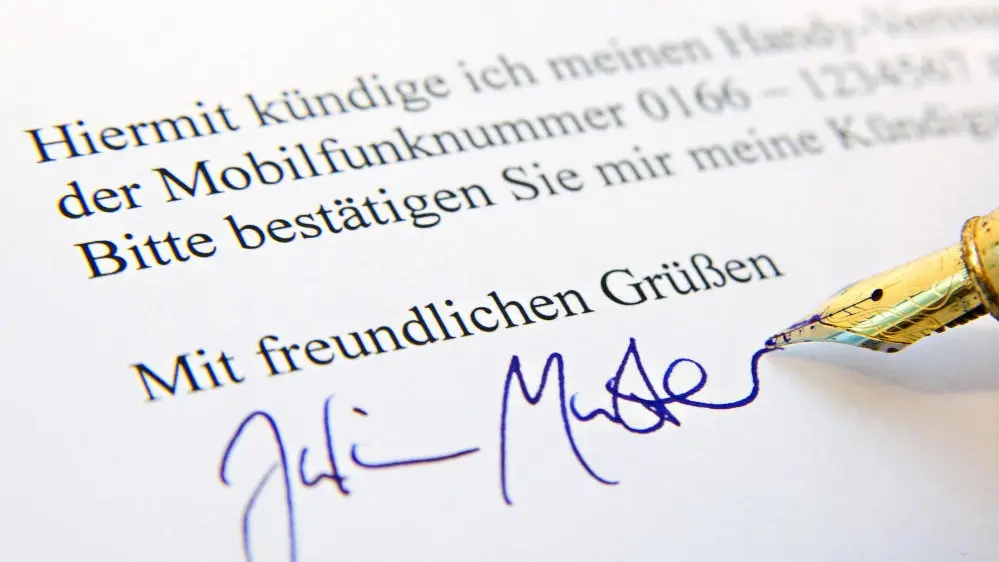 Hiermit kündige ich meinen Handy-Vertrag
der Mobilfunknummer 0166 – 1234567
Bitte bestätigen Sie mir meine Kündigu
Mit freundlichen Grüßen
Julia Muster